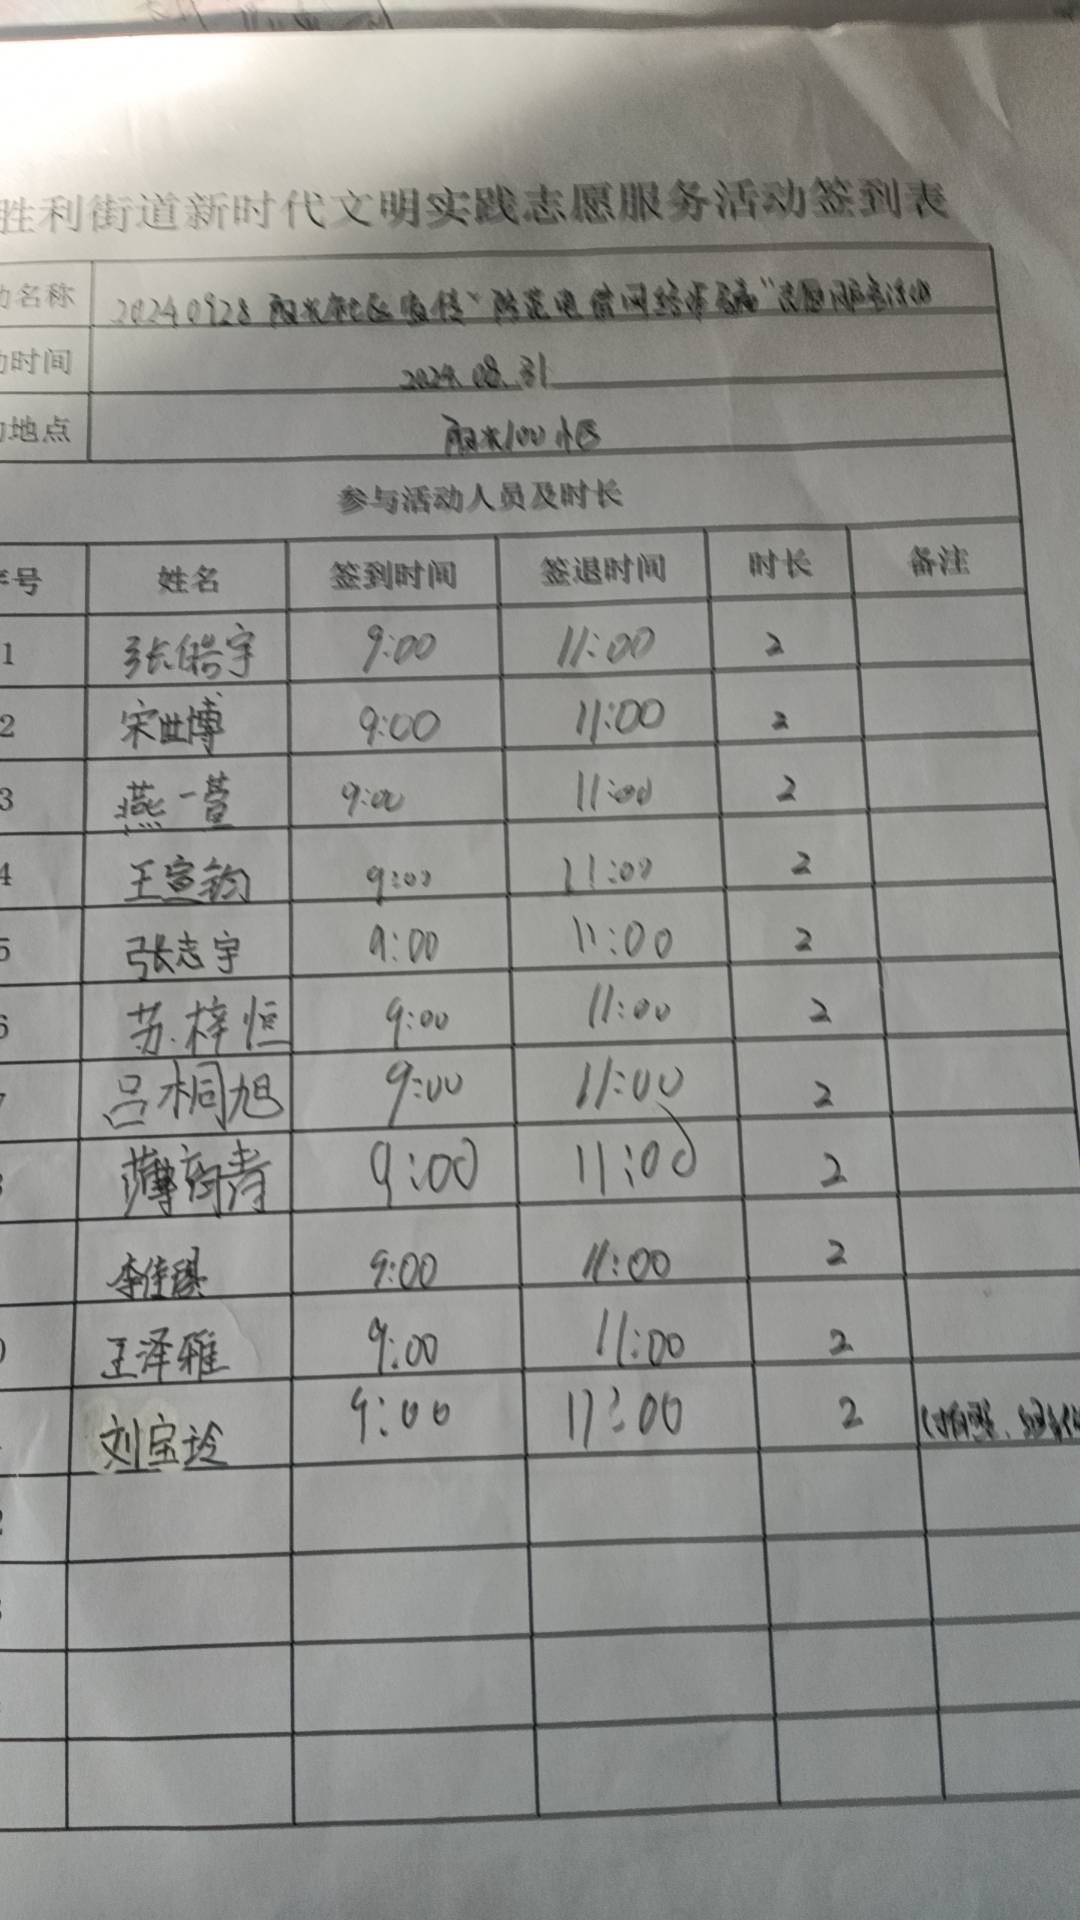 胜利街道新时代文明实践志愿服务活动签到表
动名称 20240928 阳光社区宣传"防范电信网络诈骗"志愿服务活动
时间 2024.08.31
地点 阳光100小区
参与活动人员及时长
号 姓名 签到时间 签退时间 时长 备注
1 张皓宇 9:00 11:00 2
2 宋世博 9:00 11:00 2
3 燕一萱 9:00 11:00 2
4 王宣钧 9:00 11:00 2
5 张志宇 9:00 11:00 2
苏梓恒 9:00 11:00 2
吕桐旭 9:00 11:00 2
薄青 9:00 11:00 2
李佳琪 9:00 11:00 2
王泽雅 9:00 11:00 2
刘宝玲 9:00 11:00 2